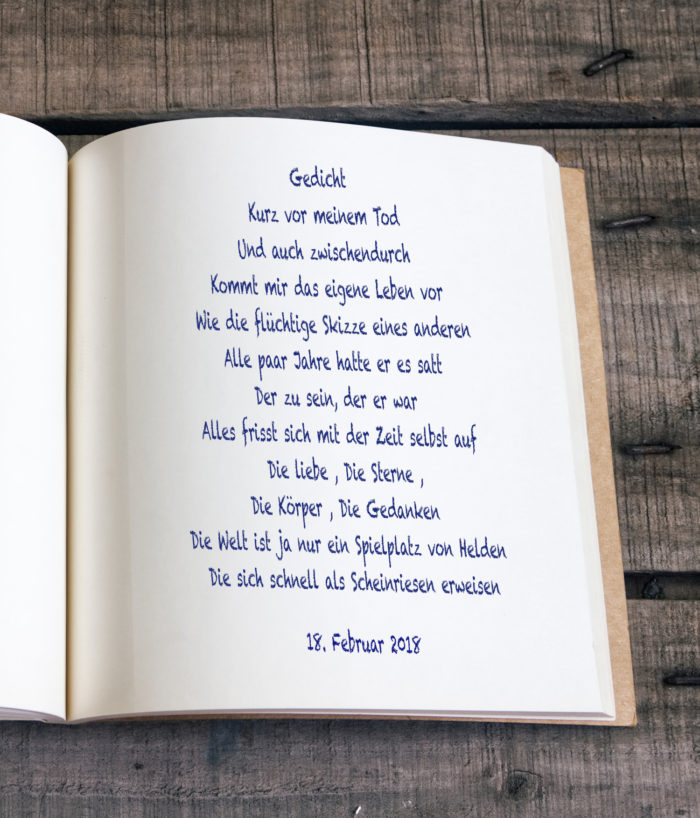 Gedicht
Kurz vor meinem Tod
Und auch zwischendurch
Kommt mir das eigene Leben vor
Wie die flüchtige Skizze eines anderen
Alle paar Jahre hatte er es satt
Der zu sein, der er war
Alles frisst sich mit der Zeit selbst auf
Die liebe , Die Sterne ,
Die Körper , Die Gedanken
Die Welt ist ja nur ein Spielplatz von Helden
Die sich schnell als Scheinriesen erweisen
18. Februar 2018